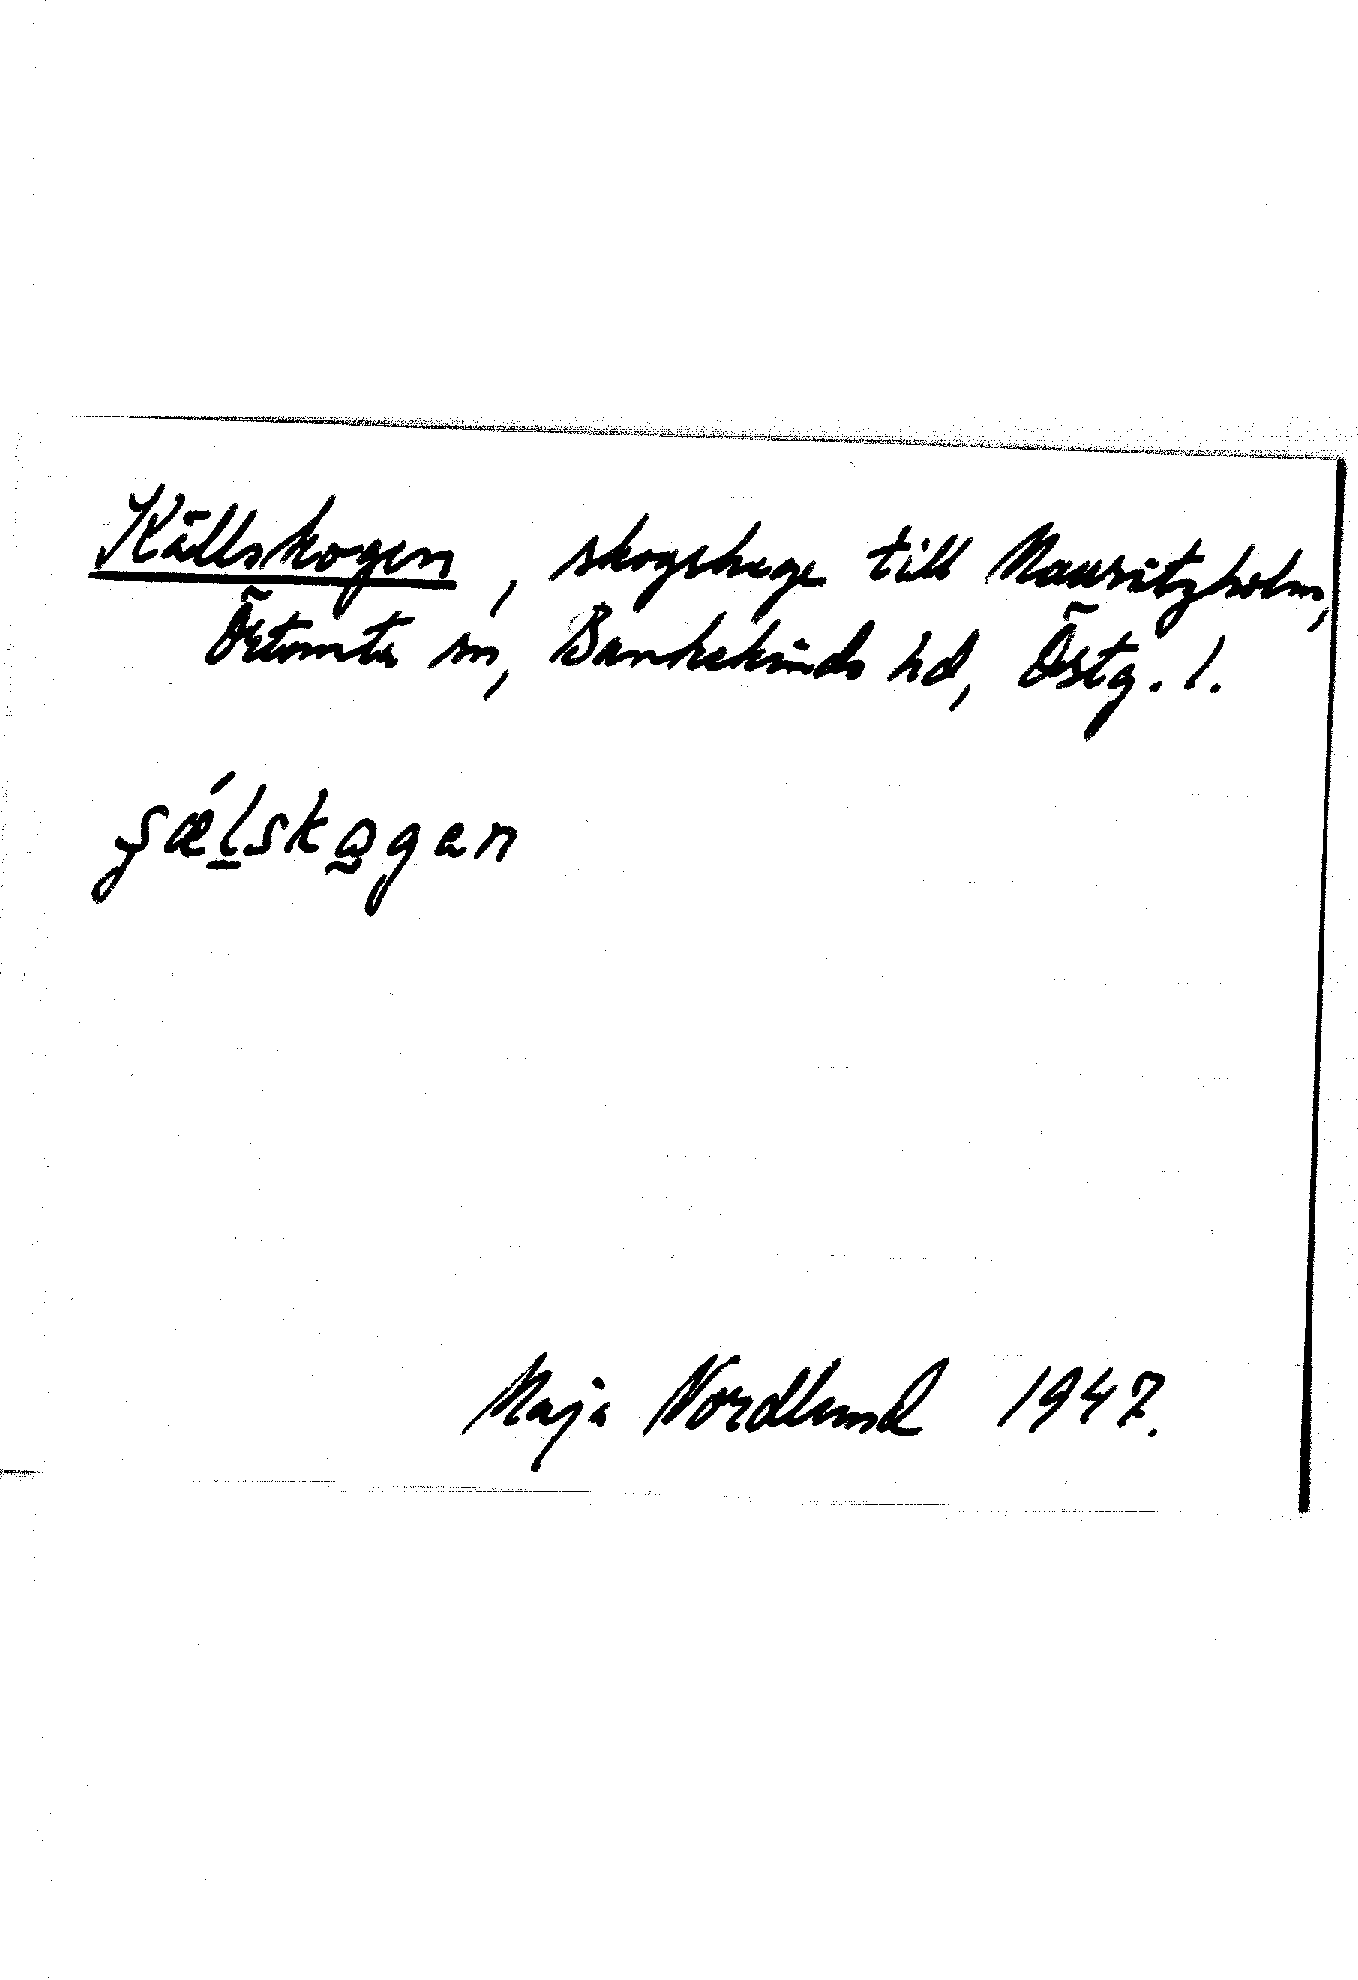 Källskogen, skogshage till Mauritzholm,
Örtomta sn, Bankekinds hd, Östg. l.
ʂǽl̲sko̰gen
Maja Nordlund 1947.